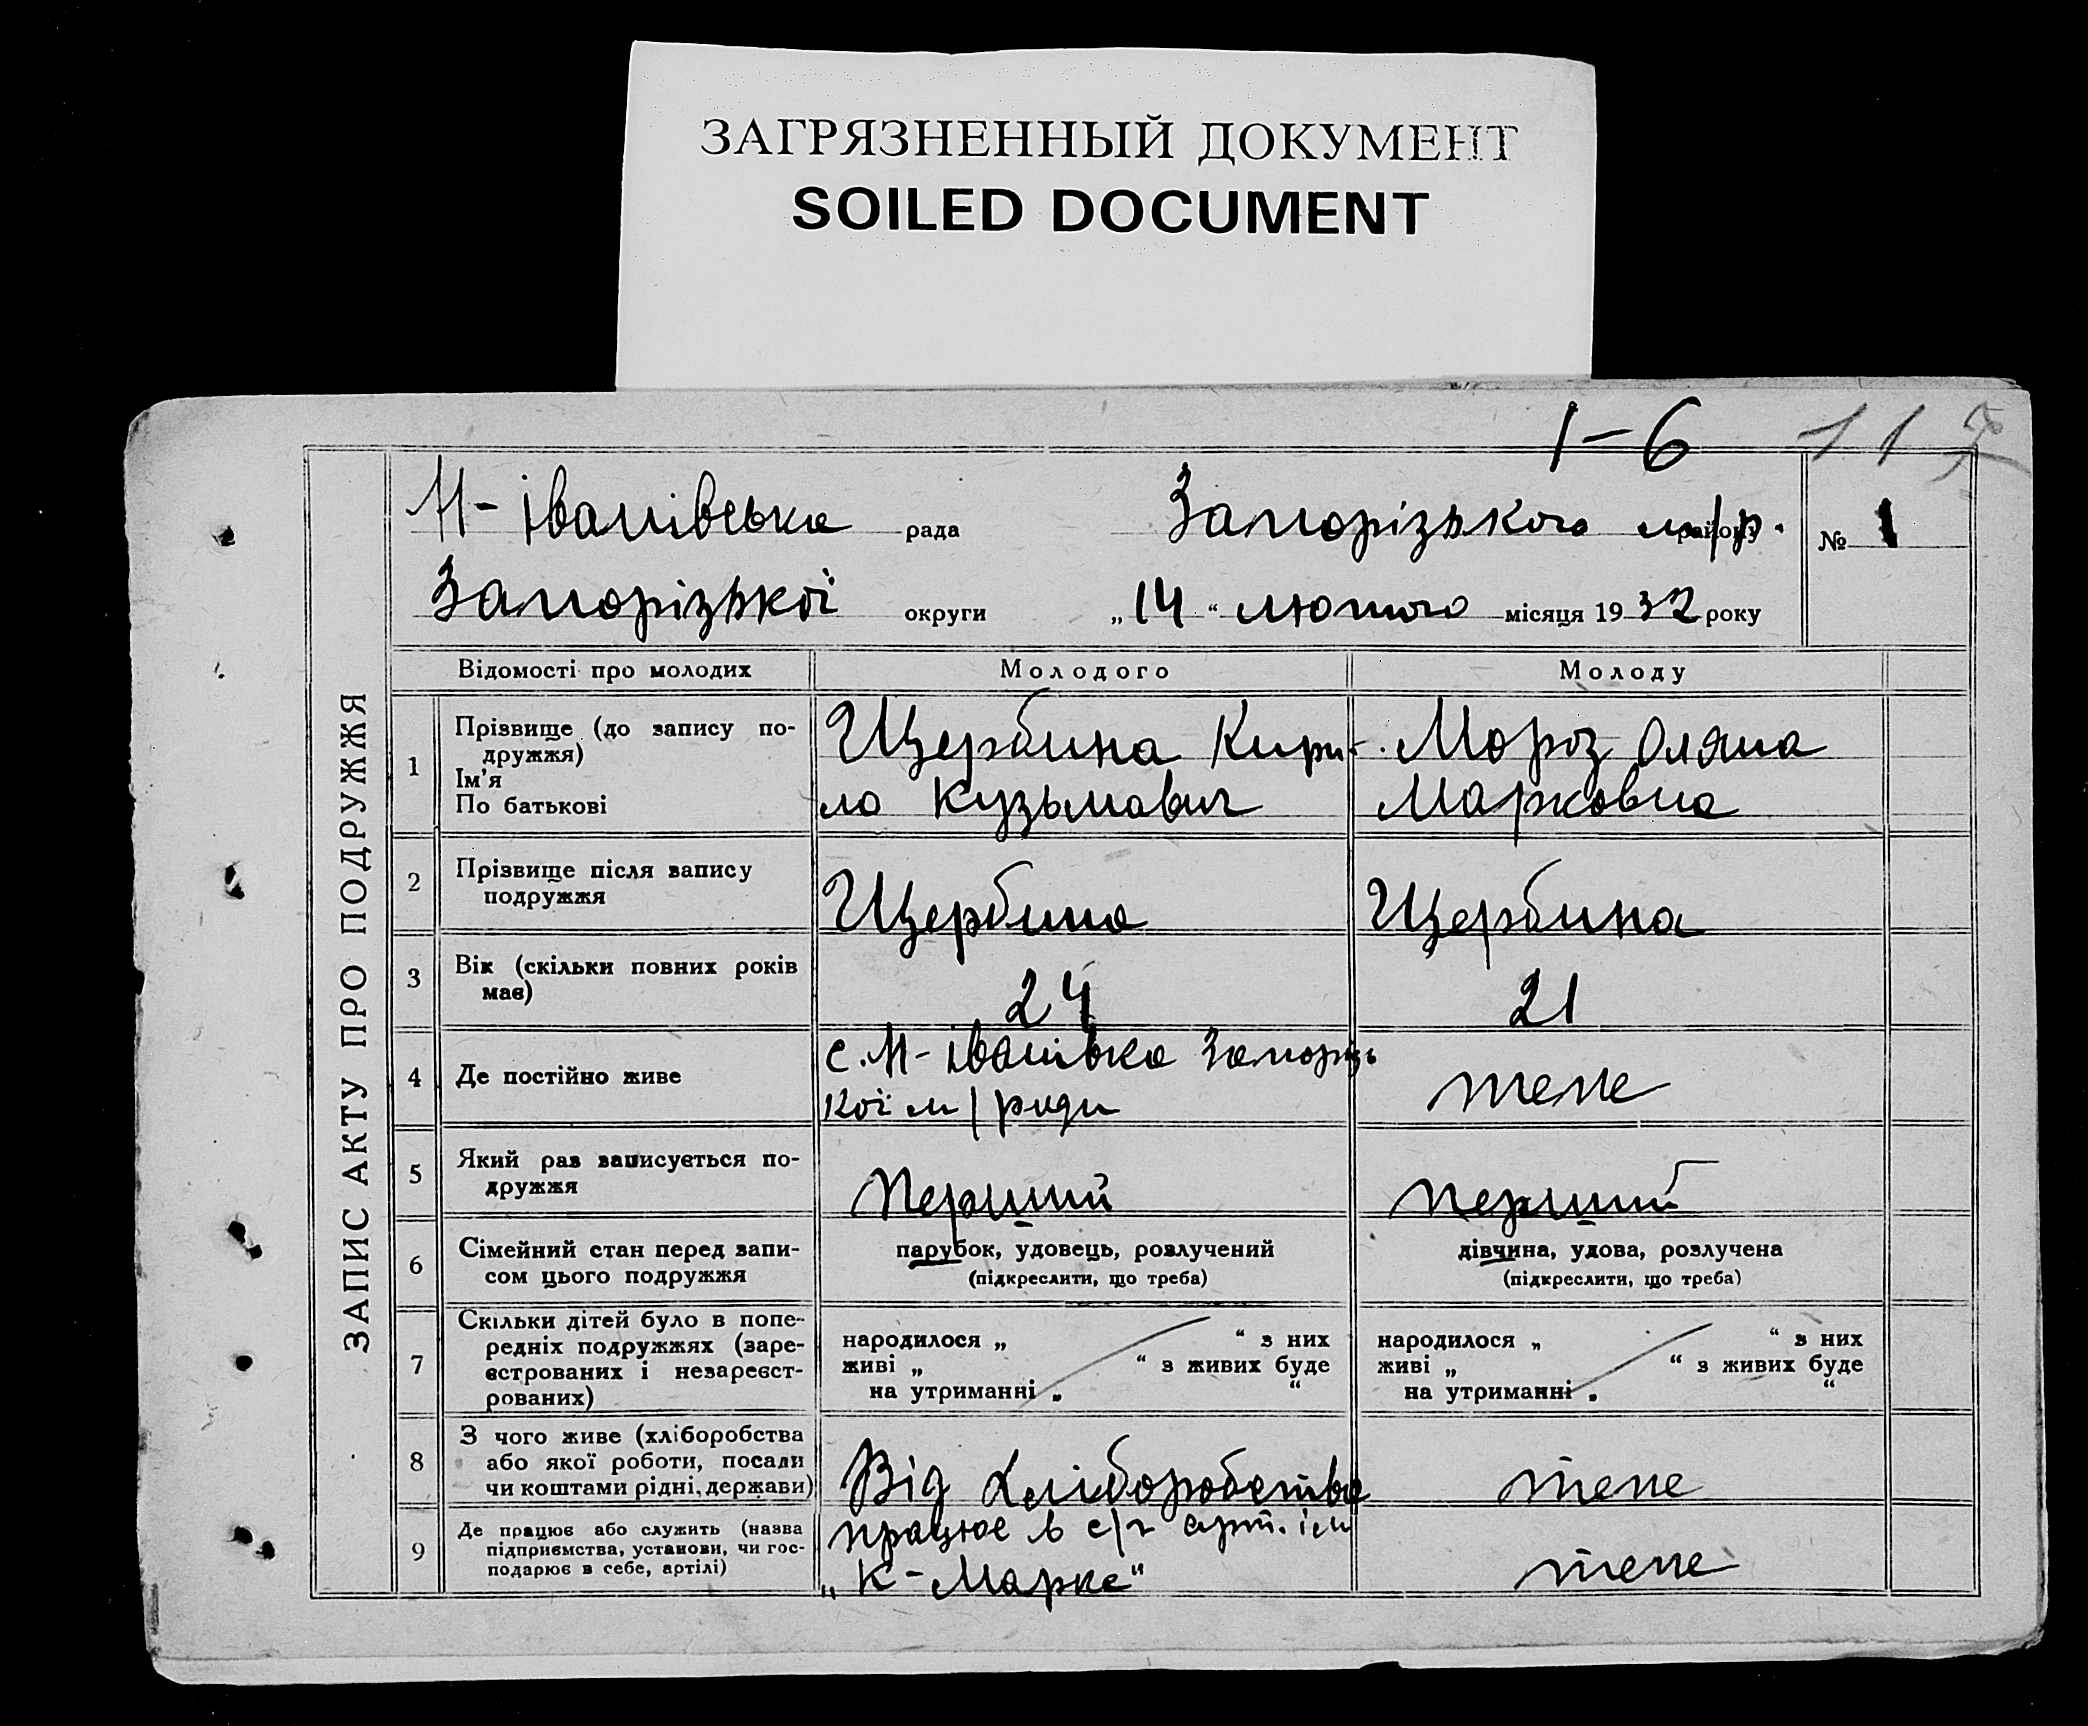 ЗАГРЯЗНЕННЫЙ ДОКУМЕНТ
SOILED DOCUMENT
1-6
11
ЗАПИС АКТУ ПРО ПОДРУЖЖЯ
Н-Іванівська рада Запорізького м/р. району № 1
Запорізької округи „14“ лютого місяця 1932 року
Відомості про молодих Молодого Молоду
1 Прізвище (до запису по-
дружжя)
Ім'я
По батькові
Щербина Кири-
ло Кузьмович
Мороз Оляна
Марковна
2 Прізвище після запису
подружжя
Щербина Щербина
3 Вік (скільки повних років
має)
24 21
4 Де постійно живе
с. Н-Іванівка Запорізь
кої м/ради
тепе
5 Який раз записується по-
дружжя
Перший перший
6 Сімейний стан перед запи-
сом цього подружжя
парубок, удовець, розлучений
(підкреслити, що треба)
дівчина, удова, розлучена
(підкреслити, що треба)
7 Скільки дітей було в попе-
редніх подружжях (заре-
єстрованих і незареєст-
рованих)
народилося „ “ з них
живі „ “ з живих буде
на утриманні „ “
народилося „ “ з них
живі „ “ з живих буде
на утриманні „ “
8 З чого живе (хліборобства
або якої роботи, посади
чи коштами рідні, держави)
Від хліборобства
тепе
9 Де працює або служить (назва
підприємства, установи, чи гос-
подарює в себе, артілі)
працює в с/г арт. ім
„К-Маркс“
тепе